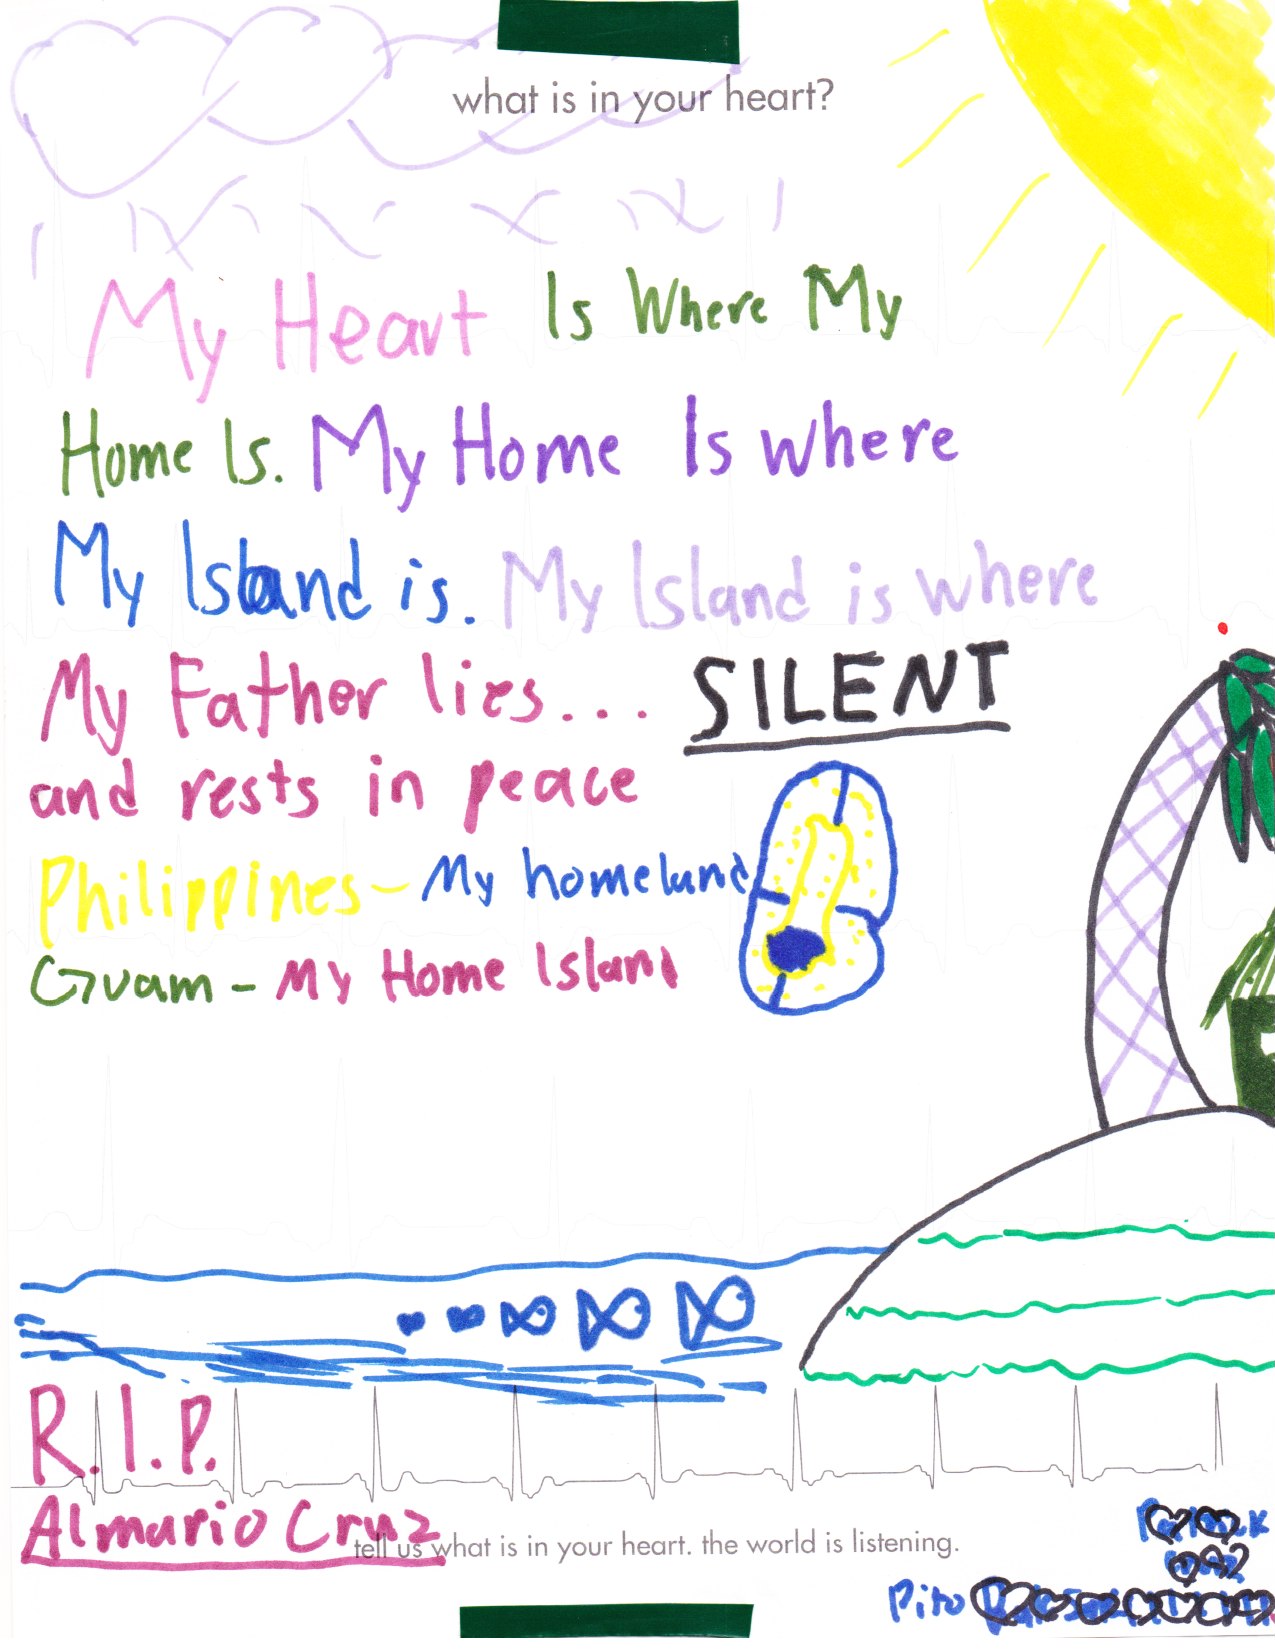 what is in your heart?
My Heart Is Where My
Home Is. My Home Is where
My Island is. My Island is where
My Father lies... SILENT
and rests in peace
Philippines - My homeland
Guam - My Home Island
R.I.P.
Almario Cruz
tell us what is in your heart. the world is listening.
Pito